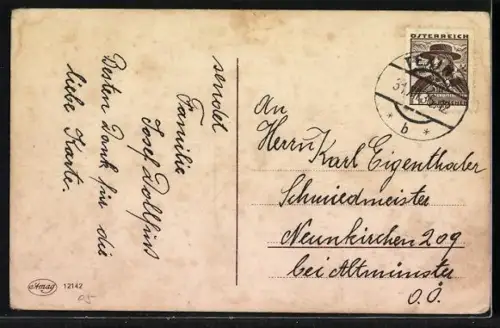 sendet
Familie
Josef Dollfuß
Besten Dank für die
liebe Karte.
ÖSTERREICH
31.
* b *
An
Herrn Karl Eigenthaler
Schmiedmeister
Neunkirchen 209
bei Altmünster
O.Ö.
12142